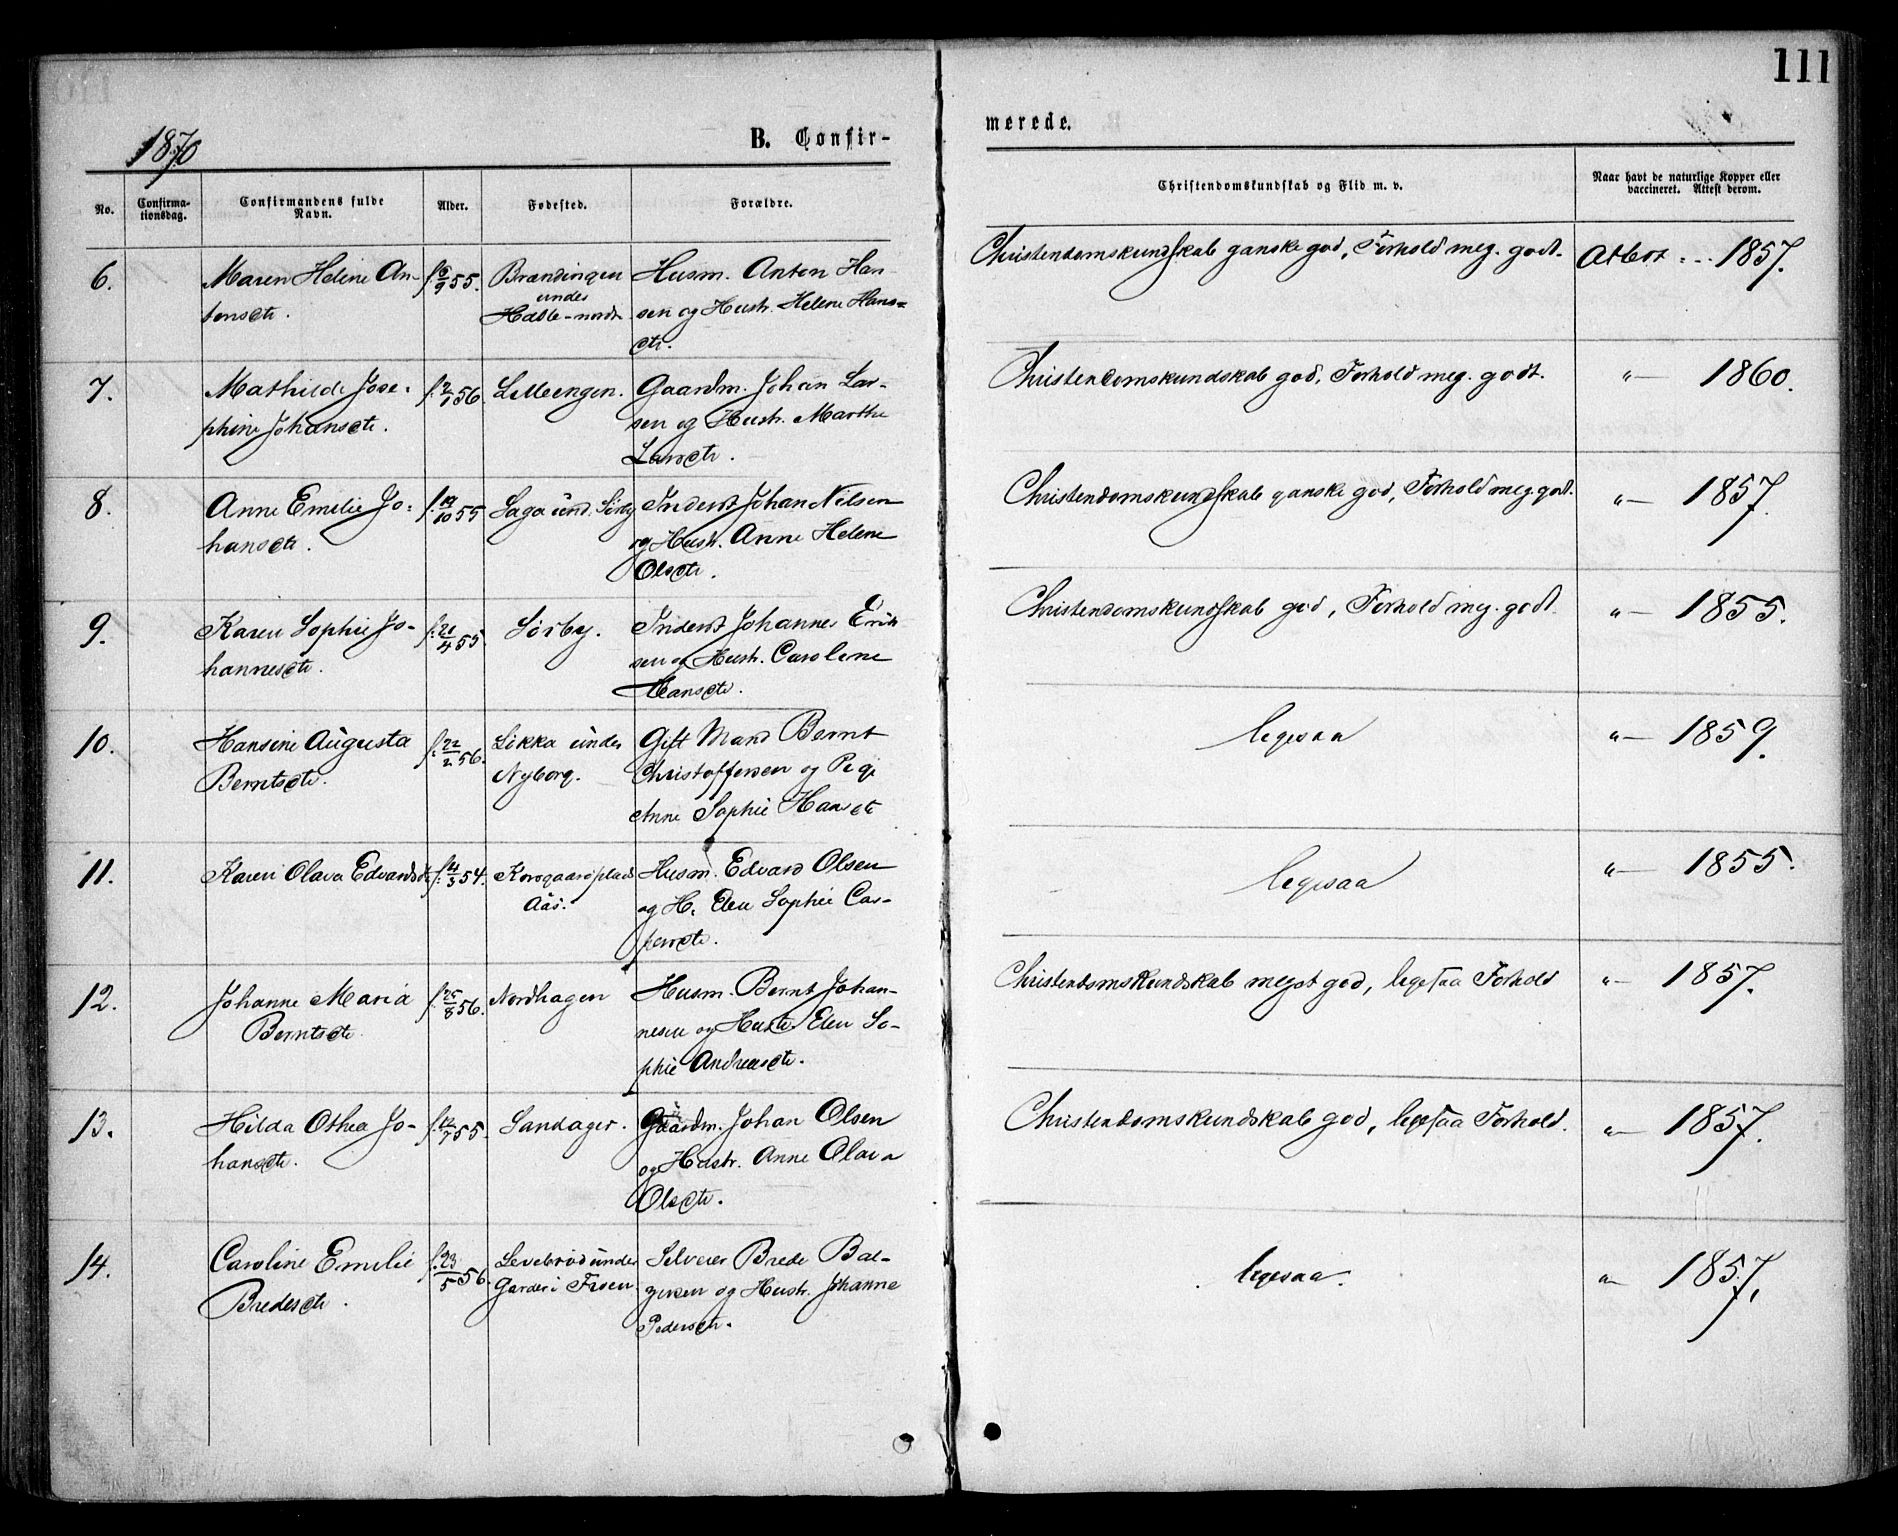 111
1870
B. Confir-
merede.
No.
Confirma-
tionsdag.
Confirmandens fulde
Navn.
Alder.
Fødested.
Forældre.
Christendomskundskab og Flid m. v.
Naar havt de naturlige Kopper eller
vaccineret. Attest derom.
6. Maren Helene An- f. 6/9 55. Brændingen Husm. Anton Han- Christendomskundskab ganske god, Forhold meg. godt. Attest . . . 1857.
tonsdtr. under
Hasle-nordre sen og Hustr. Helene Hans=
dtr.
7. Mathilde Jose- f. 2/1 56. Lilleengen. Gaardm. Johan Lar- Christendomskundskab god, Forhold meg. godt. "— 1860.
phine Johansdtr. sen og Hustr. Marthe
Larsdtr.
8. Anne Emilie Jo- f. 19/10 55 Saga und. Sørby Inderst Johan Nilsen Christendomskundskab ganske god, Forhold meg. godt. "— 1857.
hansdtr. og Hustr. Anne Helene
Olsdtr.
9. Karen Sophie Jo- f. 21/4 55. Sørby. Inderst Johannes Erik Christendomskundskab god, Forhold meg. godt. "— 1855.
hannesdtr. sen og Hustr. Caroline
Hansdtr.
10. Hansine Augusta f. 22/2 56. Løkka under Gift Mand Bernt ligesaa "— 1859.
Berntsdtr. Nyborg. Christoffersen og Pige
Anne Sophie Hansdtr
11. Karen Olava Edvardsdtr f. 4/3 54. Korsgaardplads Husm. Edvard Olsen ligesaa "— 1855.
Aas. og H. Elen Sophie Cas-
persdtr.
12. Johanne Maria f. 25/8 56. Nordhagen Husm. Bernt Johan- Christendomskundskab meget god, ligesaa Forhold "— 1857.
Berntsdtr. nesen og Hustr. Elen So-
phie Andreasdtr.
13. Hilda Othea Jo- f. 12/7 55. Sandager. Gaardm. Johan Olsen Christendomskundskab god, ligesaa Forhold. "— 1857.
hansdtr. og Hustr. Anne Olava
Olsdtr.
14. Caroline Emilie f. 23/5 56. under Selveier Brede Bal- ligesaa. "— 1857.
Bredesdtr. Garder i gersen og Hustr. Johanne
Pedersdtr.